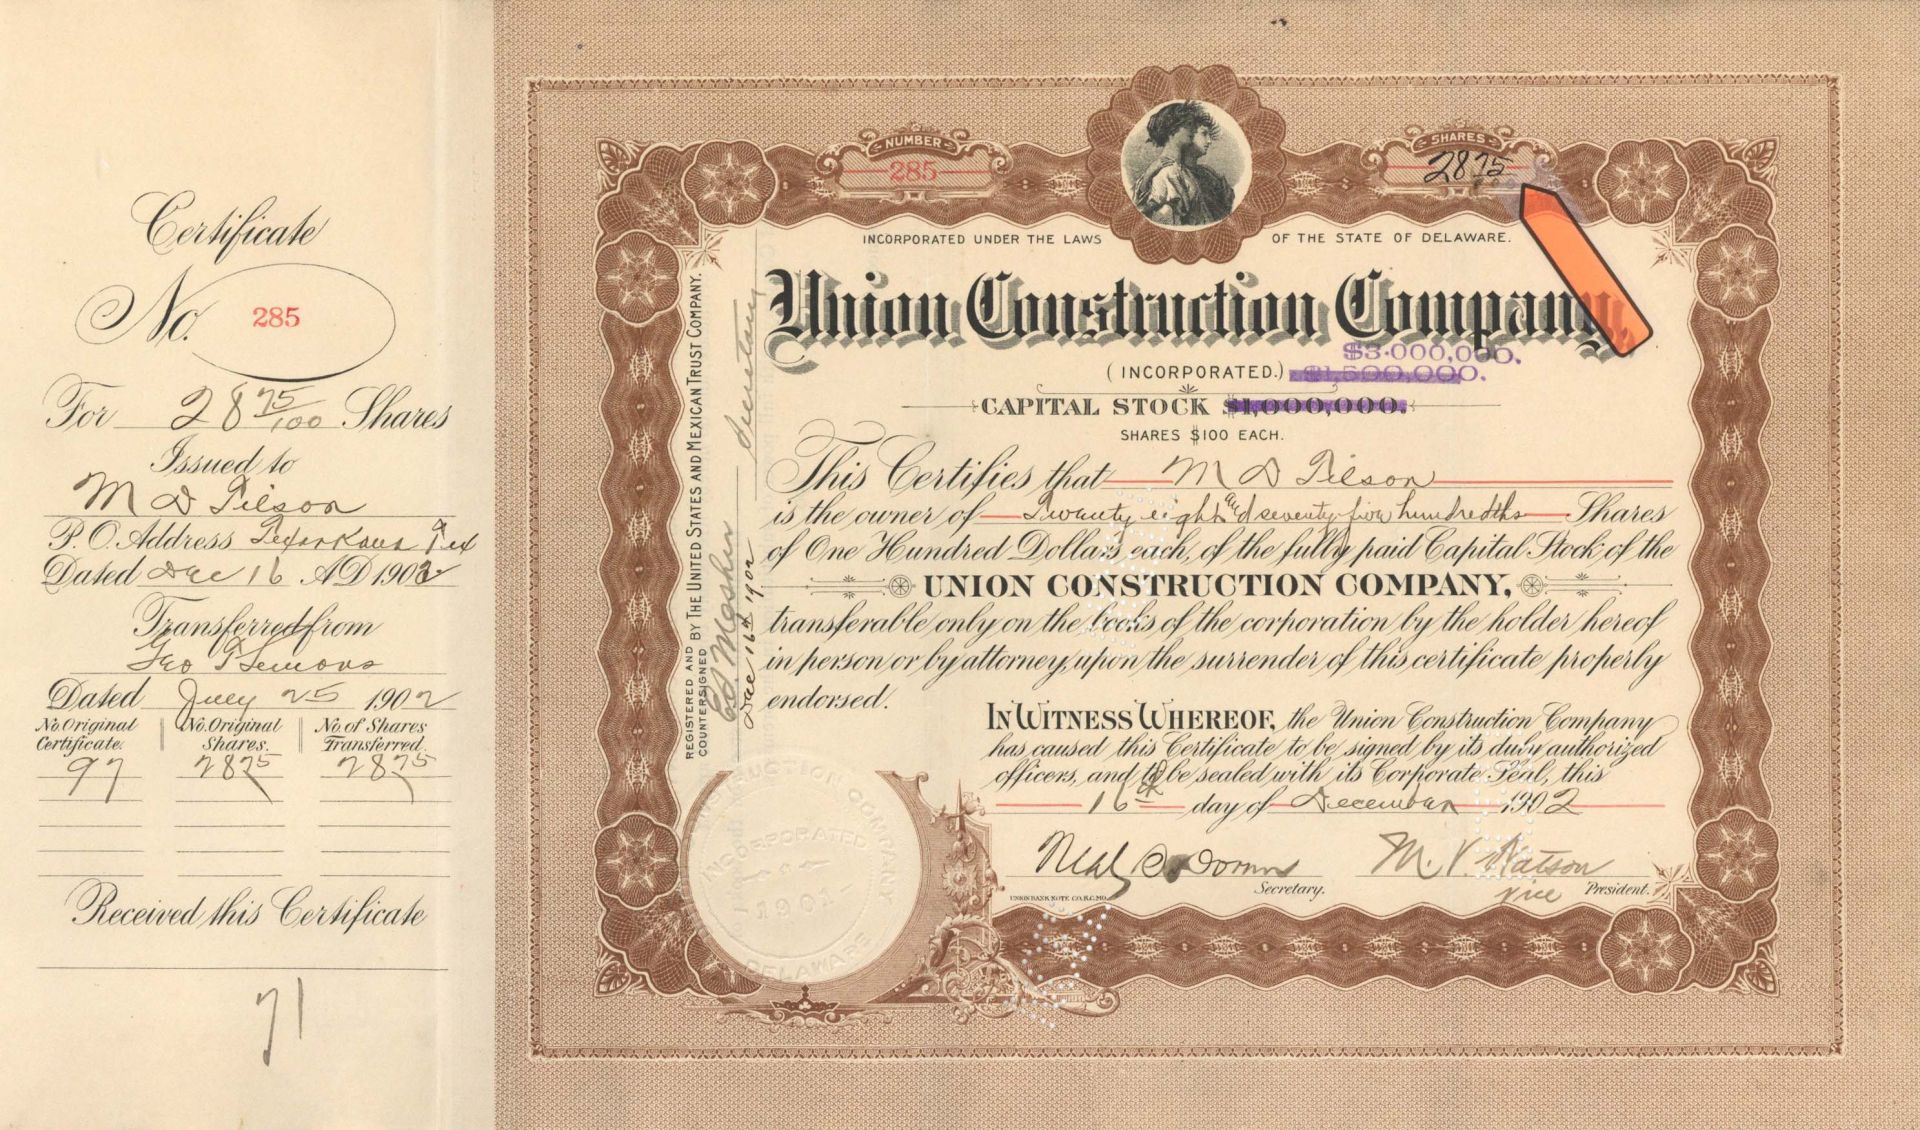 Certificate
No. 285
For 28 75/100 Shares
Issued to
M D Tilson
P. O. Address Texarkana Tex
Dated Dec 16 AD 1902
Transferred from
Geo T Lemons
Dated July 25 1902
No. Original Certificate.
No. Original Shares.
No. of Shares Transferred.
97 2875 2875
Received this Certificate
71
NUMBER
285
SHARES
28 75
INCORPORATED UNDER THE LAWS OF THE STATE OF DELAWARE.
Union Construction Company,
$3,000,000.
(INCORPORATED.) $1,500,000.
CAPITAL STOCK $1,000,000.
SHARES $100 EACH.
This Certifies that M D Tilson
is the owner of Twenty eight and seventy five hundredths Shares
of One Hundred Dollars each, of the fully paid Capital Stock of the
UNION CONSTRUCTION COMPANY,
transferable only on the books of the corporation by the holder hereof
in person or by attorney, upon the surrender of this certificate properly
endorsed.
IN WITNESS WHEREOF, the Union Construction Company
has caused this Certificate to be signed by its duly authorized
officers, and to be sealed with its Corporate Seal, this
16th day of December 1902
M. V. Watson
Secretary.
Vice President.
UNION BANK NOTE CO. K.C. MO.
REGISTERED AND BY THE UNITED STATES AND MEXICAN TRUST COMPANY.
COUNTERSIGNED
Secretary
Dec 16th 1902
CONSTRUCTION COMPANY
INCORPORATED
1901
DELAWARE